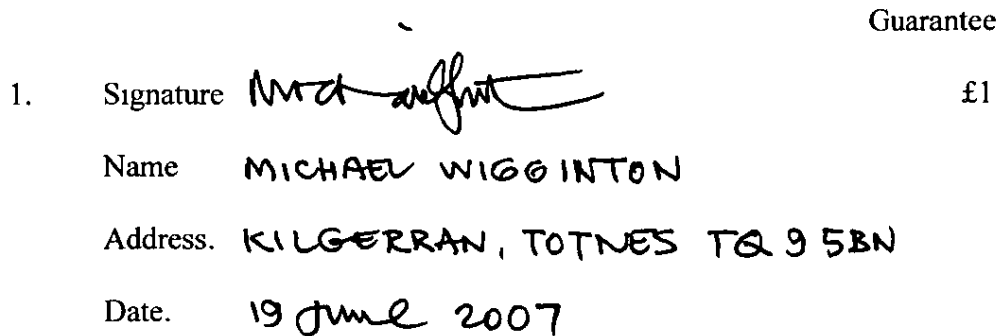 Guarantee
1. Signature £1
Name MICHAEL WIGGINTON
Address. KILGERRAN, TOTNES TQ9 5BN
Date. 19 June 2007